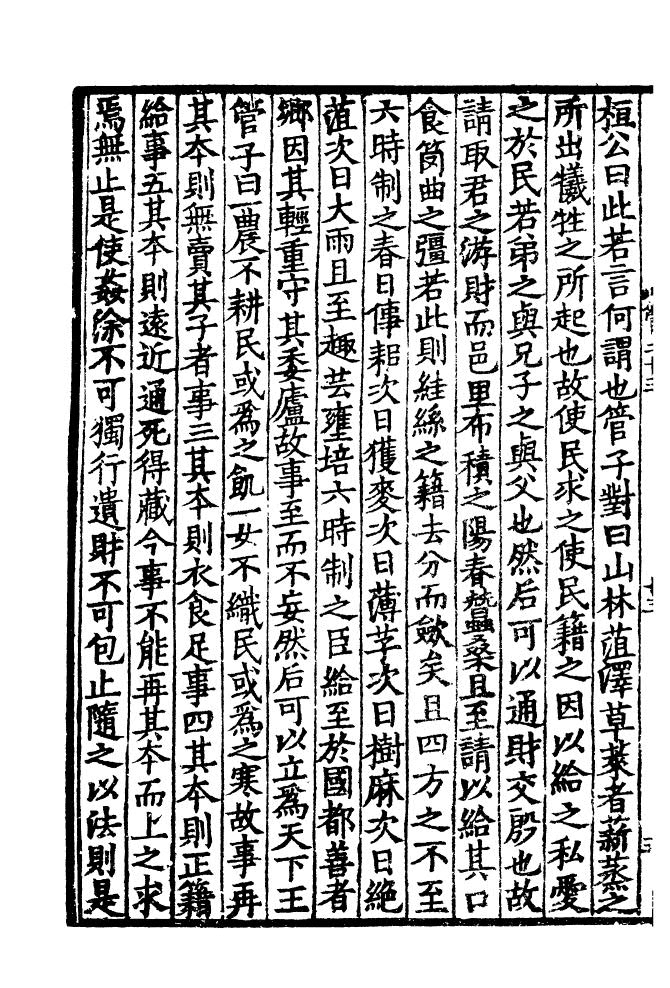 桓公曰此若言何謂也管子對曰山林菹澤草萊者薪蒸之
所出犧牲之所起也故使民求之使民籍之因以給之私愛
之於民若弟之與兄子之與父也然后可以通財交殷也故
請取君之游財而邑里布積之陽春蠶桑且至請以給其口
食筥曲之彊若此則絓絲之籍去分而歛矣且四方之不至
六時制之春日倳耜次日獲麥次日薄芋次日樹麻次日絶
菹次日大雨且至趣芸壅培六時制之臣給至於國都善者
鄉因其輕重守其委廬故事至而不妄然后可以立爲天下王
管子曰一農不耕民或爲之飢一女不織民或爲之寒故事再
其本則無賣其子者事三其本則衣食足事四其本則正籍
給事五其本則遠近通死得藏今事不能再其本而上之求
焉無止是使姦涂不可獨行遺財不可包止隨之以法則是